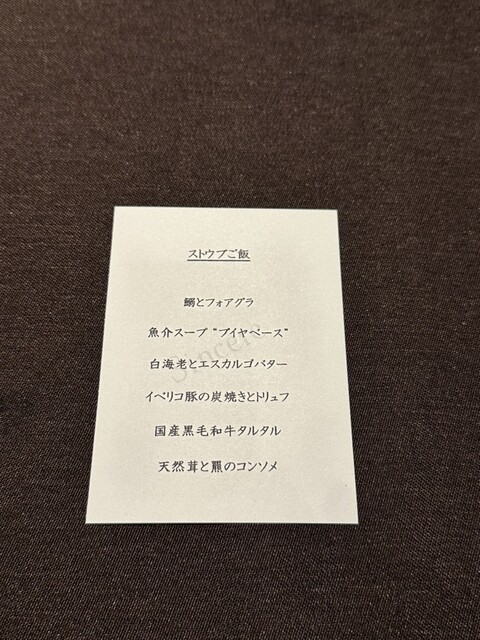 ストウブご飯
鰯とフォアグラ
魚介スープ “ブイヤベース”
白海老とエスカルゴバター
イベリコ豚の炭焼きとトリュフ
国産黒毛和牛タルタル
天然茸と羆のコンソメ